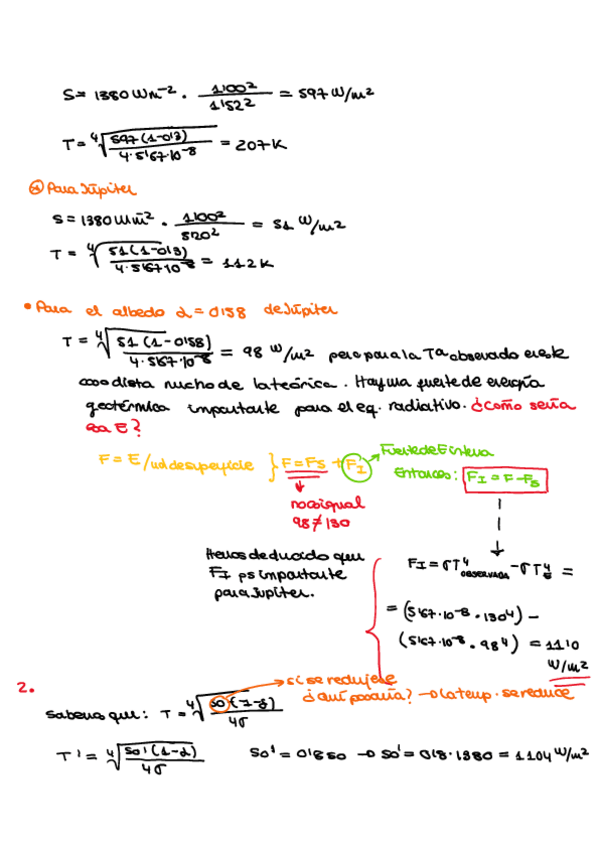 S = 1380 Wm⁻² · 1'00² / 1'52² = 597 W/m²
T = ⁴√(597 (1-0'3) / 4·5'67·10⁻⁸) = 207 K
Para Júpiter
S = 1380 Wm⁻² · 1'00² / 5'20² = 51 W/m²
T = ⁴√(51 (1-0'3) / 4·5'67·10⁻⁸) = 112 K
• Para el albedo α = 0'58 de Júpiter
T = ⁴√(51 (1-0'58) / 4·5'67·10⁻⁸) = 98 W/m² pero para la Tª observada en este
caso dista mucho de la teórica. Hay una fuente de energía
geotérmica importante para el eq. radiativo. ¿Cómo sería
esa E?
F = E/ud de superficie } F = Fs + FI → Fuente de E interna
Entonces: FI = F - Fs
no es igual
98 ≠ 130
Hemos deducido que
FI es importante
para Jupiter.
FI = σT⁴ OBSERVADA - σT⁴ =
= (5'67·10⁻⁸ · 130⁴) -
(5'67·10⁻⁸ · 98⁴) = 11'0
W/m²
2.
→ si se reduje
¿qué pasaría? → la temp. se reduce
Sabemos que: T = ⁴√(S0 (1-α) / 4σ)
T' = ⁴√(S0' (1-α) / 4σ) S0' = 0'8 S0 → S0' = 0'8 · 1380 = 1104 W/m²